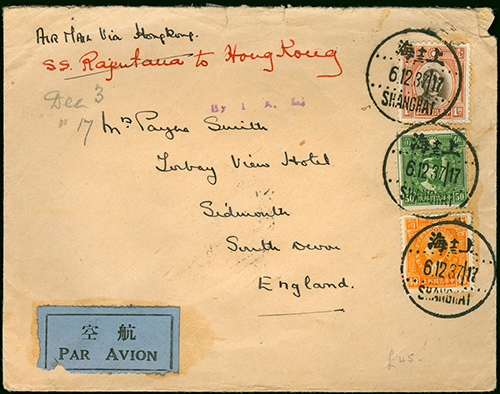 AIR MAIL Via Hongkong.
SS. Raputana to Hong Kong
Dec 3
" 17
By
Mrs Payne Smith
Torbay View Hotel
Sidmouth
South Devon
England.
上海
6.12.37/17
SHANGHAI
50
上海
6.12.37/17
SHANGHAI
上海
6.12.37/17
SHANGHAI
空航
PAR AVION
£45.